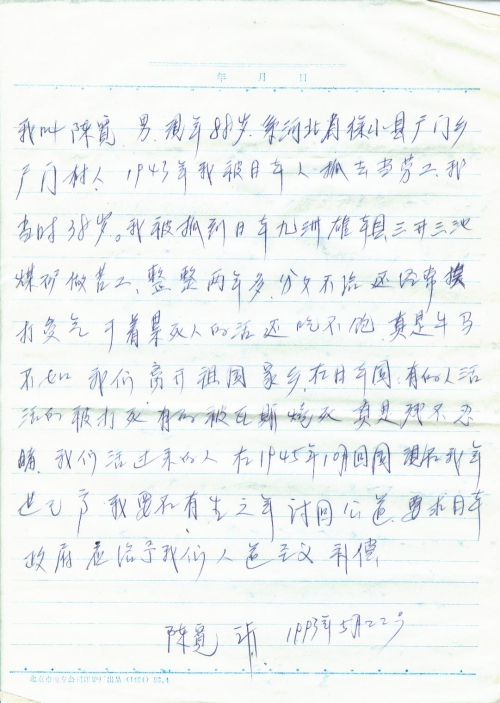 年 月 日
我叫陈宽 男 现年88岁 系河北省徐水县户门乡
户门村人 1943年我被日本人抓去当劳工,我
当时38岁。我被抓到日本九洲 雄本县三井三池
煤矿做苦工,整整两年多,分文不给 还经常挨
打受气 干着累死人的活还吃不饱 真是牛马
不如 我们离开祖国家乡,在日本国,有的人活
活的被打死 有的被瓦斯烧死 真是残不忍
睹,我们活过来的人 在1945年10月回国 现在我年
世已高 我要在有生之年讨回公道 要求日本
政府应给予我们人道主义 补偿
陈宽 1993年5月22号